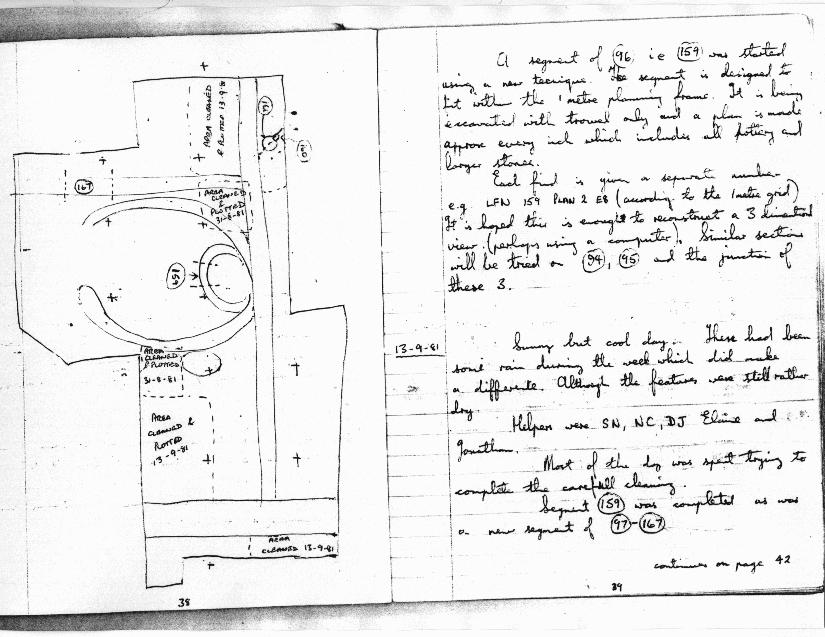 AREA CLEANED
& PLOTTED 13-9-81
161
160
167
AREA
CLEANED
&
PLOTTED
31-8-81
159
AREA
CLEANED
& PLOTTED
31-8-81
AREA
CLEANED &
PLOTTED
13-9-81
AREA
CLEANED 13-9-81
38
A segment of (96) ie (159) was started
using a new tecnique. The segment is designed to
fit within the 1 metre planning frame. It is being
excavated with trowel only and a plan is made
approx every inch which includes all pottery and
larger stones.
Each find is given a separate number
e.g. LFN 159 PLAN 2 E8 (according to the 1 metre grid)
It is hoped this is enough to reconstruct a 3 dimentional
view (perhaps using a computer). Similar sections
will be tried on (94), (95) and the junction of
these 3.
13-9-81
Sunny but cool day. There had been
some rain during the week which did make
a difference. Although the features were still rather
dry.
Helpers were SN, NC, DJ Elaine and
Jonathan.
Most of the day was spent trying to
complete the carefull cleaning.
Segment (159) was completed as was
a new segment of (97)-(167)
continues on page 42
39